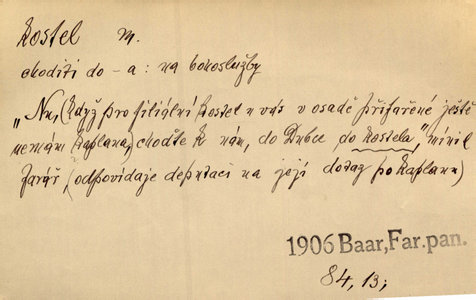 kostel m.
choditi do -a: na bohoslužby
„Nu, (když pro filiální kostel u vás v osadě přifařené ještě
nemám kaplana,) choďte k nám, do Dubce do kostela," mínil
farář, (odpovídaje deputaci na její dotaz po kaplanu)
1906 Baar, Far. pan.
84, 13;